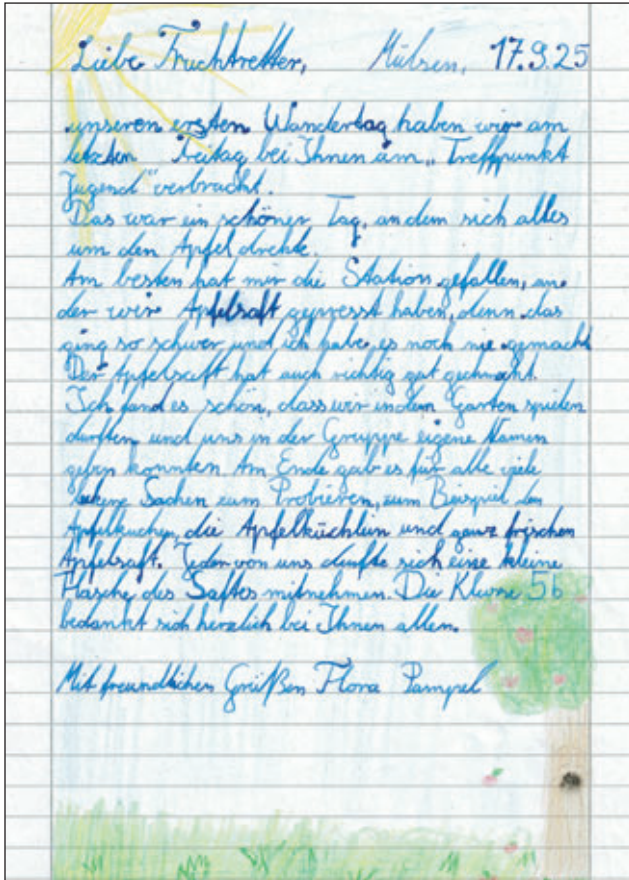 Liebe Fruchtretter, Mülsen, 17.9.25
unseren ersten Wandertag haben wir am
letzten Freitag bei Ihnen am „Treffpunkt
Jugend" verbracht.
Das war ein schöner Tag, an dem sich alles
um den Apfel drehte.
Am besten hat mir die Station gefallen, an
der wir Apfelsaft gepresst haben, denn das
ging so schwer und ich habe es noch nie gemacht
Der Apfelsaft hat auch richtig gut geschmeckt.
Ich fand es schön, dass wir in dem Garten spielen
durften und uns in der Gruppe eigene Namen
geben konnten. Am Ende gab es für alle viele
leckere Sachen zum Probieren, zum Beispiel den
Apfelkuchen, die Apfelküchlein und ganz frischen
Apfelsaft. Jeder von uns durfte sich eine kleine
Flasche des Saftes mitnehmen. Die Klasse 5b
bedankt sich herzlich bei Ihnen allen.
Mit freundlichen Grüßen Flora Pampel